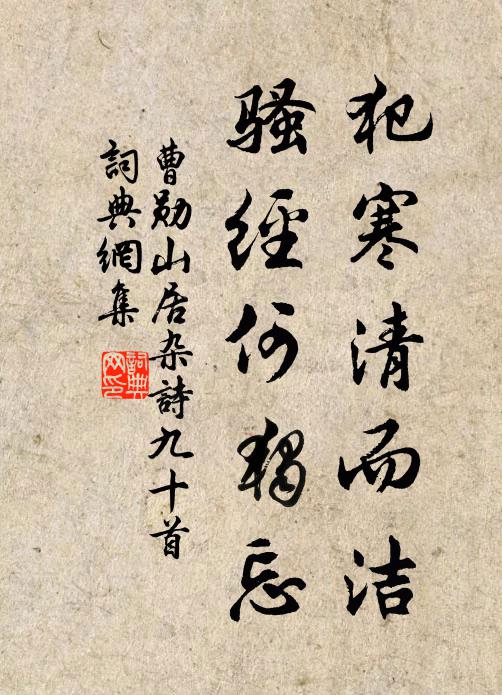 犯寒清而洁
骚经何独忘
曹勋山居杂詩九十首
詞典網集
詞典网印